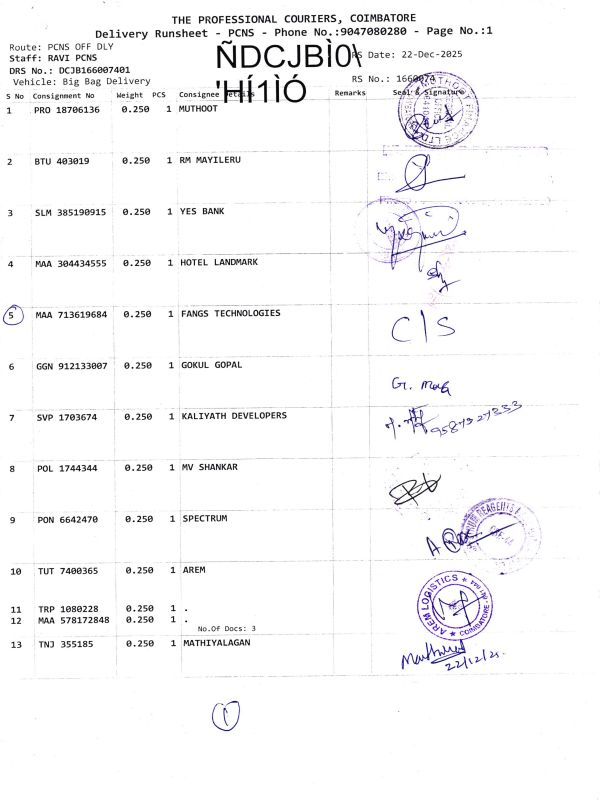 THE PROFESSIONAL COURIERS, COIMBATORE
Delivery Runsheet - PCNS - Phone No.:9047080280 - Page No.:1
Route: PCNS OFF DLY
Staff: RAVI PCNS
RS Date: 22-Dec-2025
DRS No.: DCJB166007401
Vehicle: Big Bag Delivery
RS No.: 1660074
ÑDCJBÌ0\
'HÍ1ÌÓ
S No Consignment No Weight PCS Consignee Details Remarks Seal & Signature
1 PRO 18706136 0.250 1 MUTHOOT
2 BTU 403019 0.250 1 RM MAYILERU
3 SLM 385190915 0.250 1 YES BANK
4 MAA 304434555 0.250 1 HOTEL LANDMARK
5 MAA 713619684 0.250 1 FANGS TECHNOLOGIES C/S
6 GGN 912133007 0.250 1 GOKUL GOPAL
7 SVP 1703674 0.250 1 KALIYATH DEVELOPERS
8 POL 1744344 0.250 1 MV SHANKAR
9 PON 6642470 0.250 1 SPECTRUM
10 TUT 7400365 0.250 1 AREM
AREM LOGISTICS
COIMBATORE
11 TRP 1080228 0.250 1 .
12 MAA 578172848 0.250 1 .
No.Of Docs: 3
13 TNJ 355185 0.250 1 MATHIYALAGAN
22/12/25
1